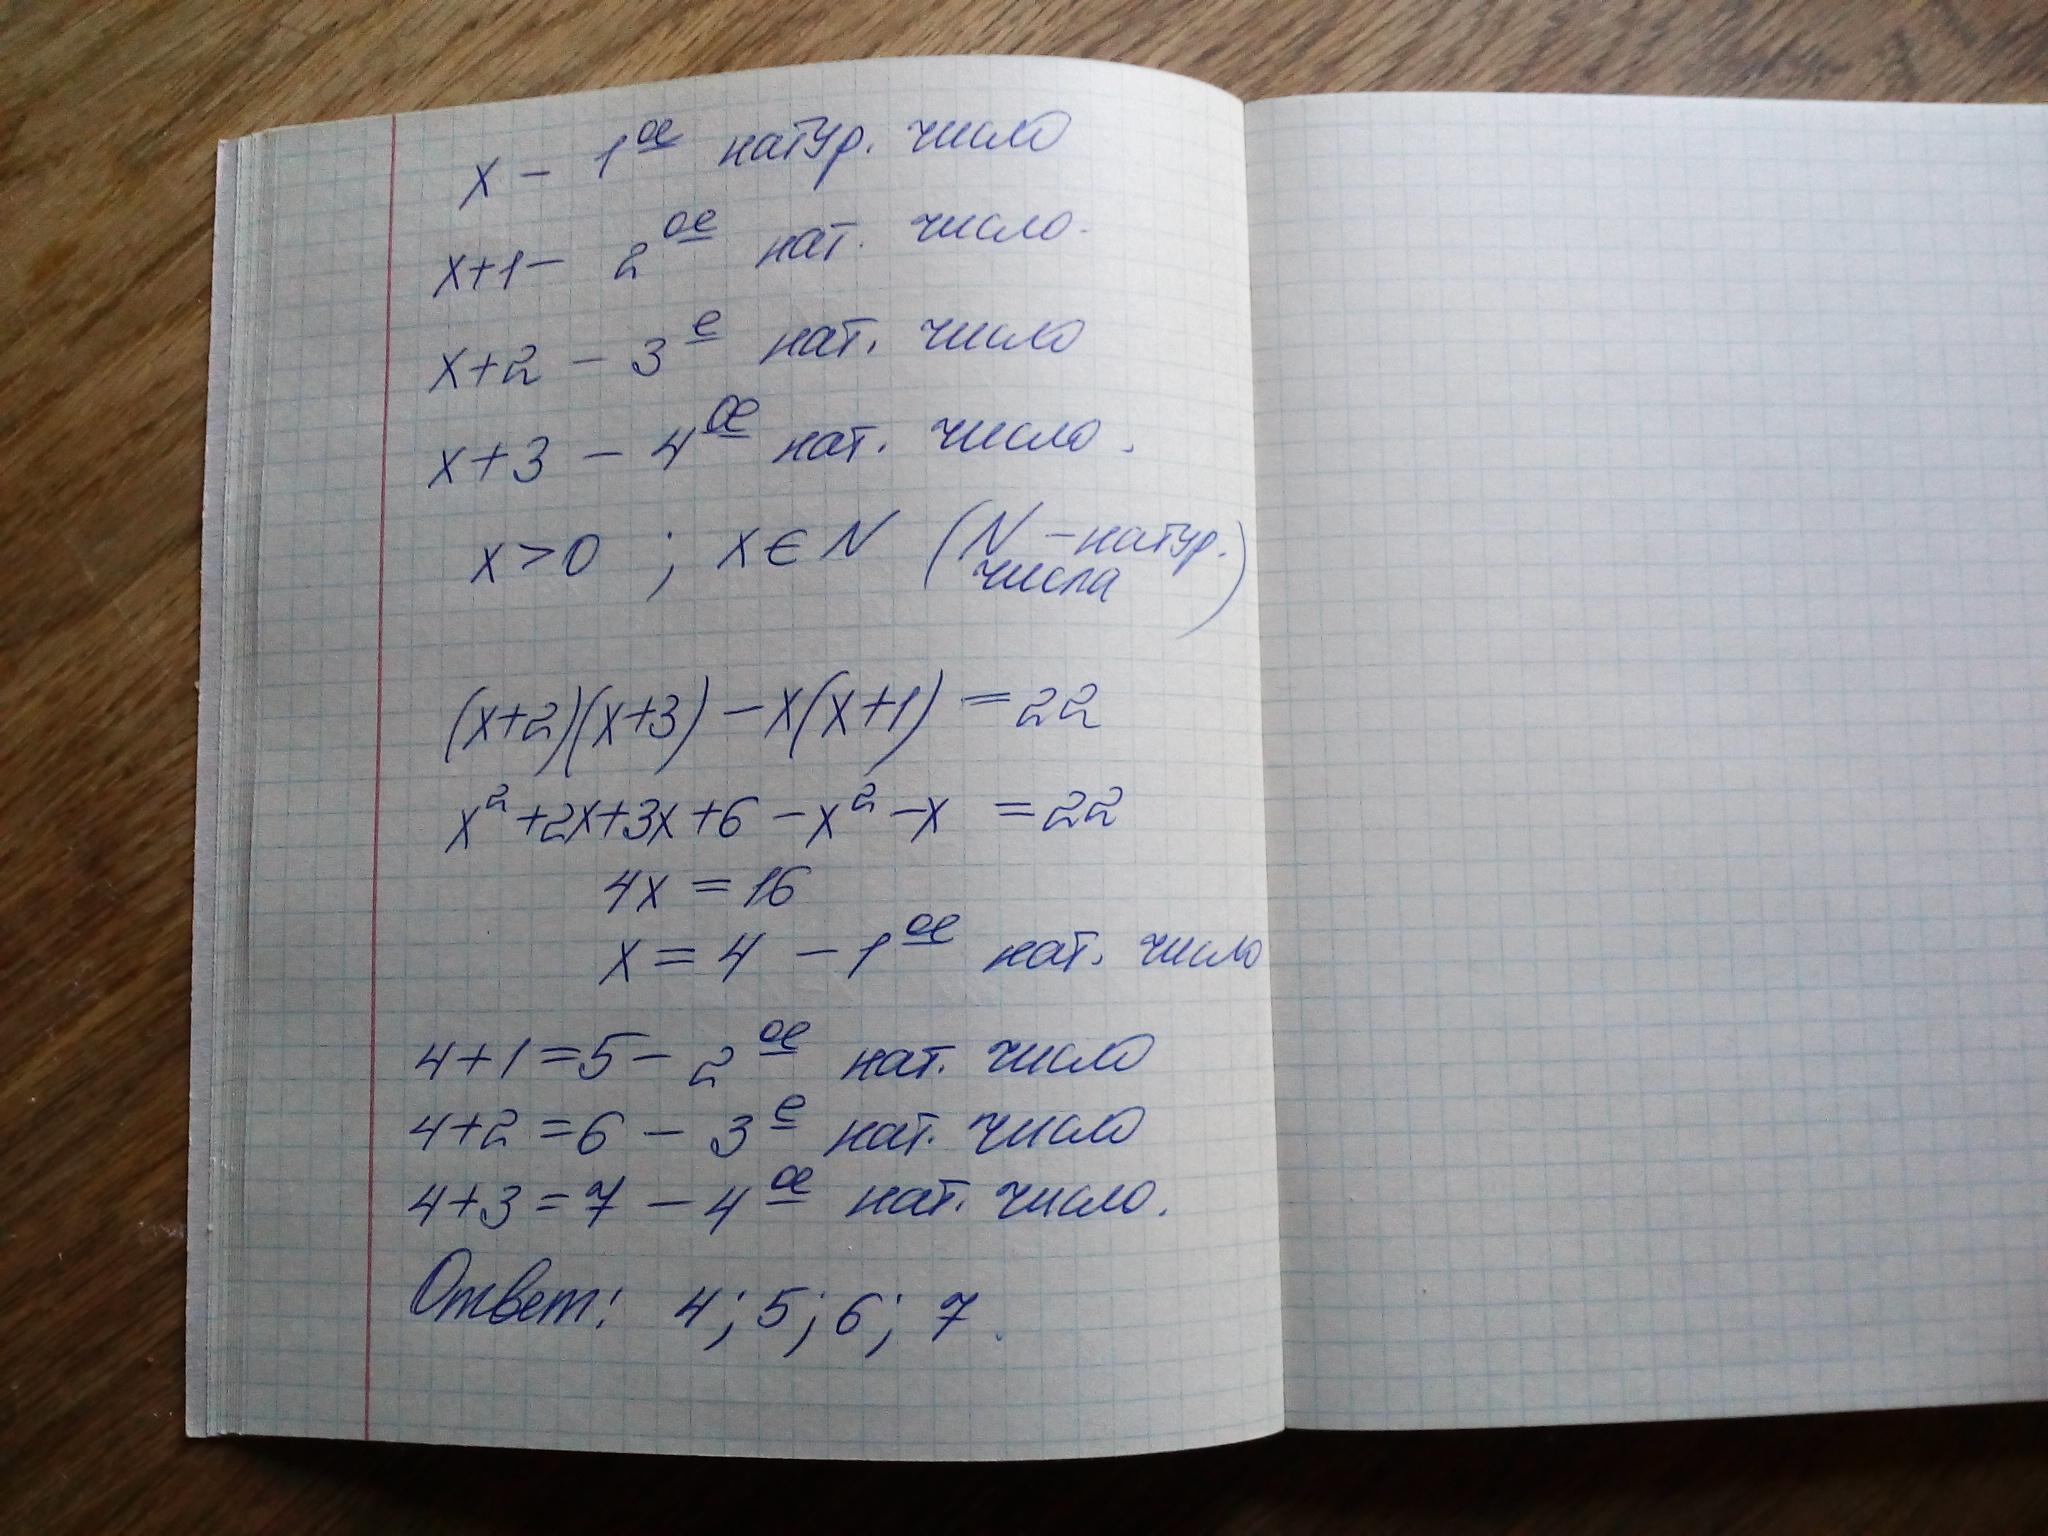 x - 1ое натур. число
x+1 - 2ое нат. число.
x+2 - 3е нат. число
x+3 - 4ое нат. число.
x>0 ; x∈N (N - натур. числа)
(x+2)(x+3) - x(x+1) = 22
x²+2x+3x+6-x²-x = 22
4x = 16
x = 4 - 1ое нат. число
4+1=5 - 2ое нат. число
4+2=6 - 3е нат. число
4+3=7 - 4ое нат. число.
Ответ: 4; 5; 6; 7.